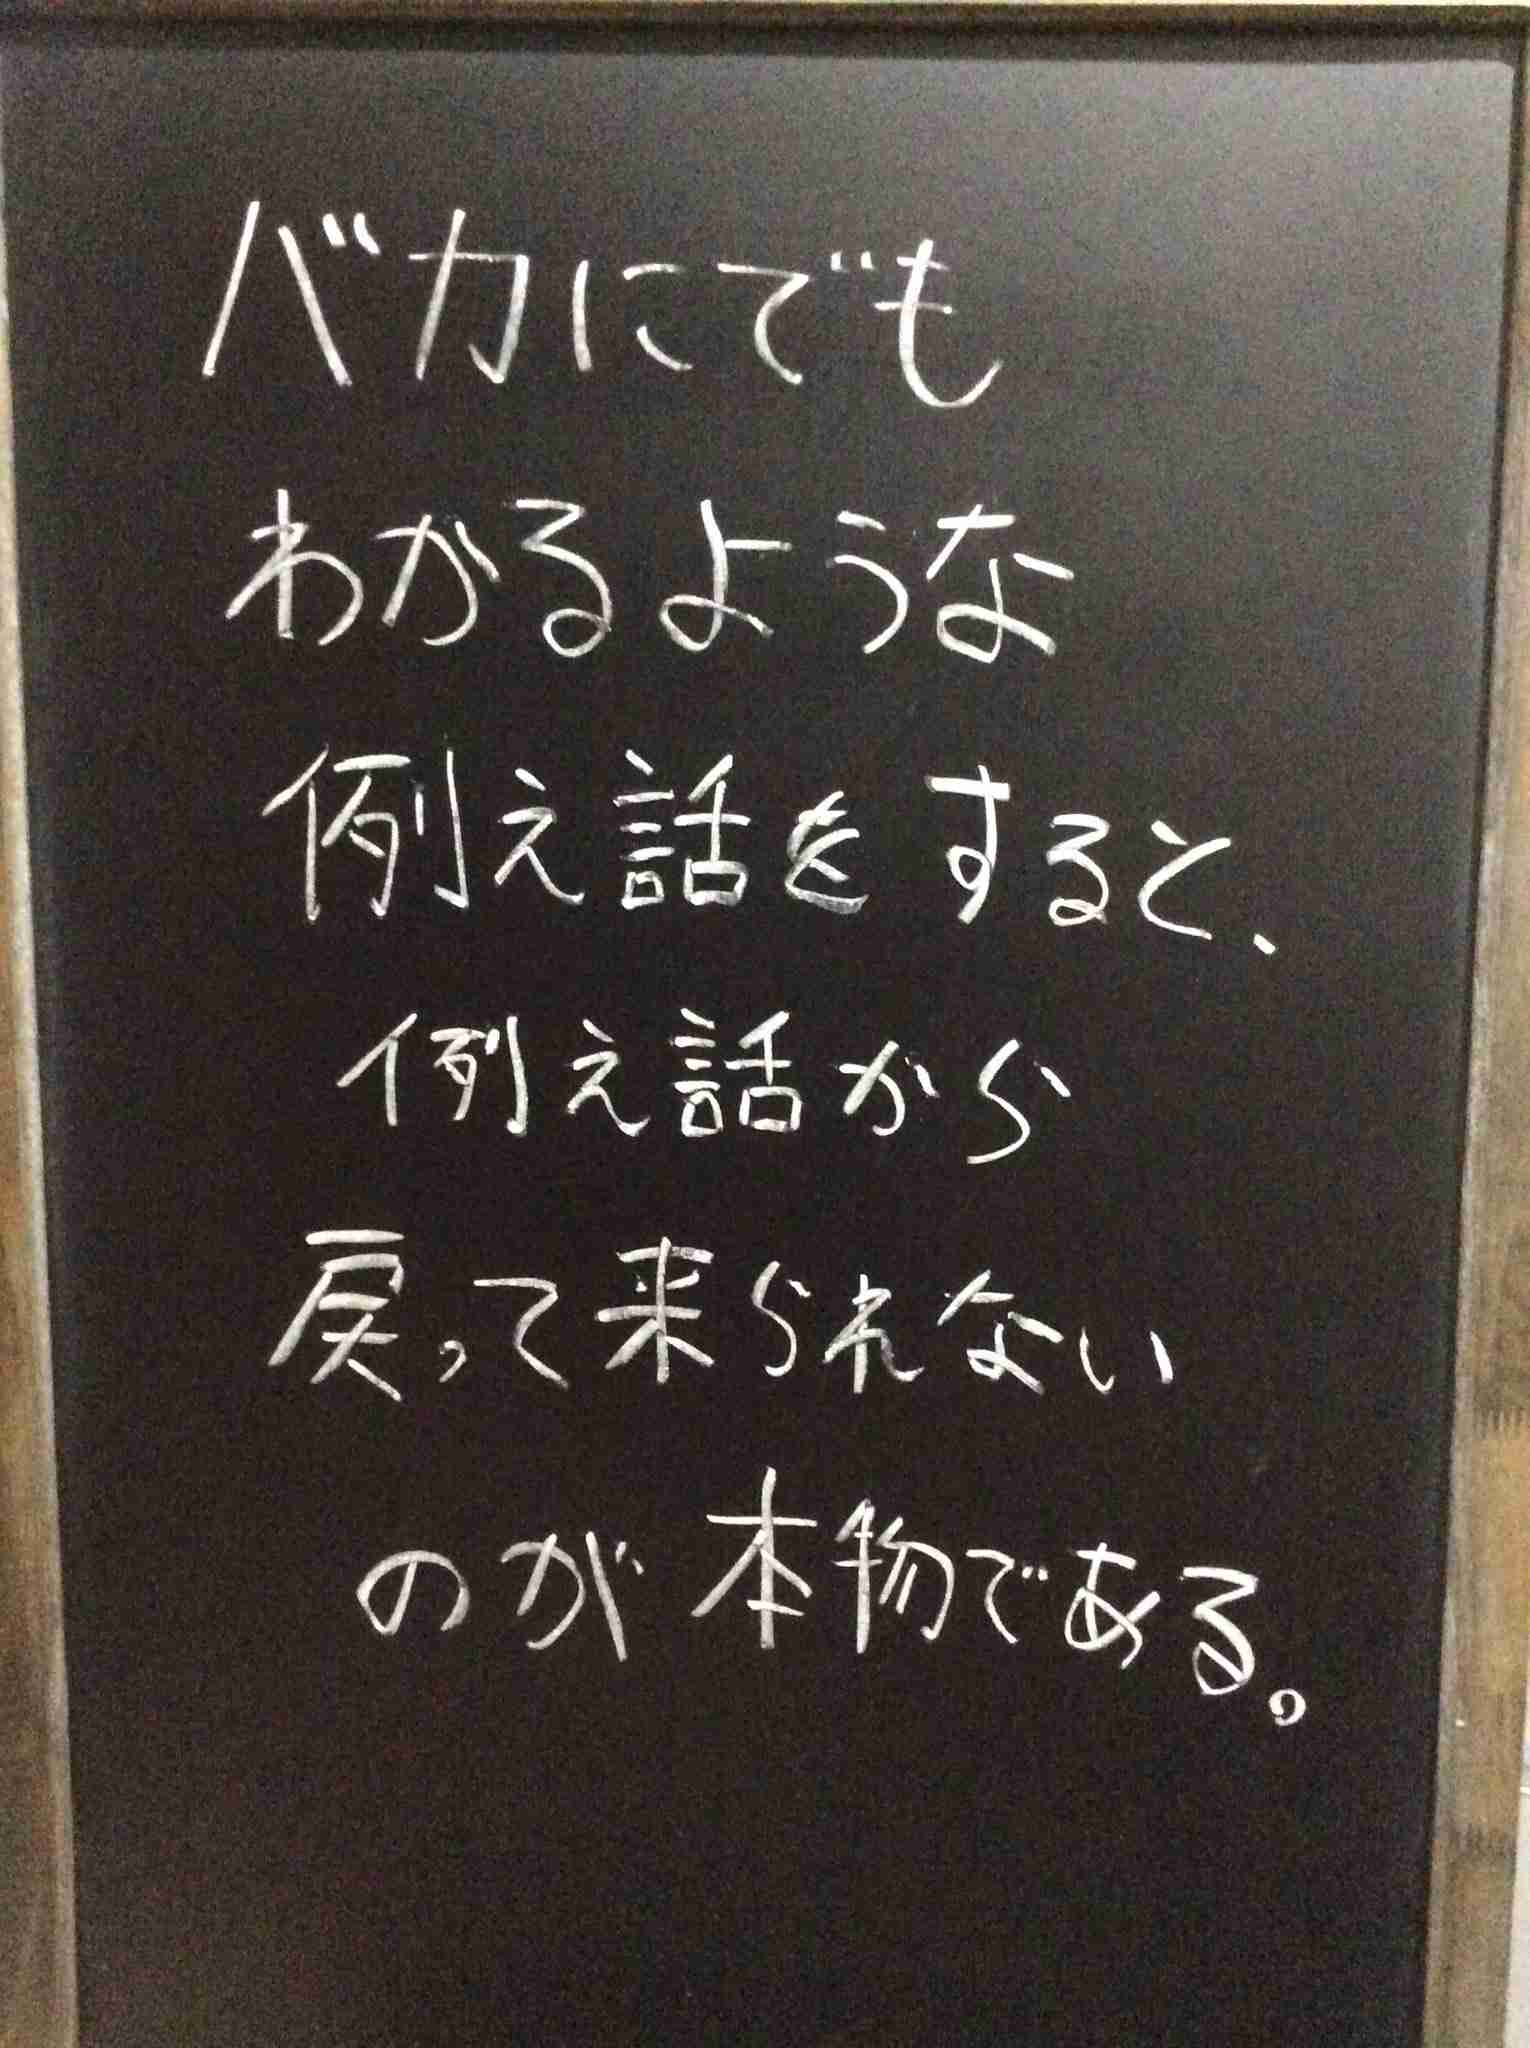 バカにでも
わかるような
例え話をすると、
例え話から
戻って来られない
のが本物である。